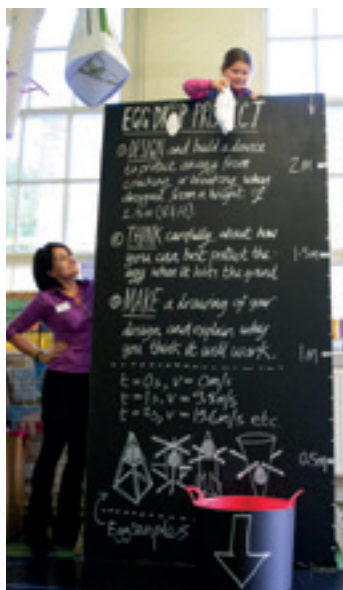 EGG DROP PROJECT
① DESIGN and build a device
to protect an egg from
cracking or breaking when
dropped from a height of
2.5m
② THINK carefully about how
you can best protect the
egg when it hits the
③ MAKE a drawing of your
design and explain why
you think it will work.
t=0s, v=0m/s
t=1s, v=9.8m/s
t=2s, v=19.6m/s etc
Eggsamples
2m
1.5m
1m
0.5m